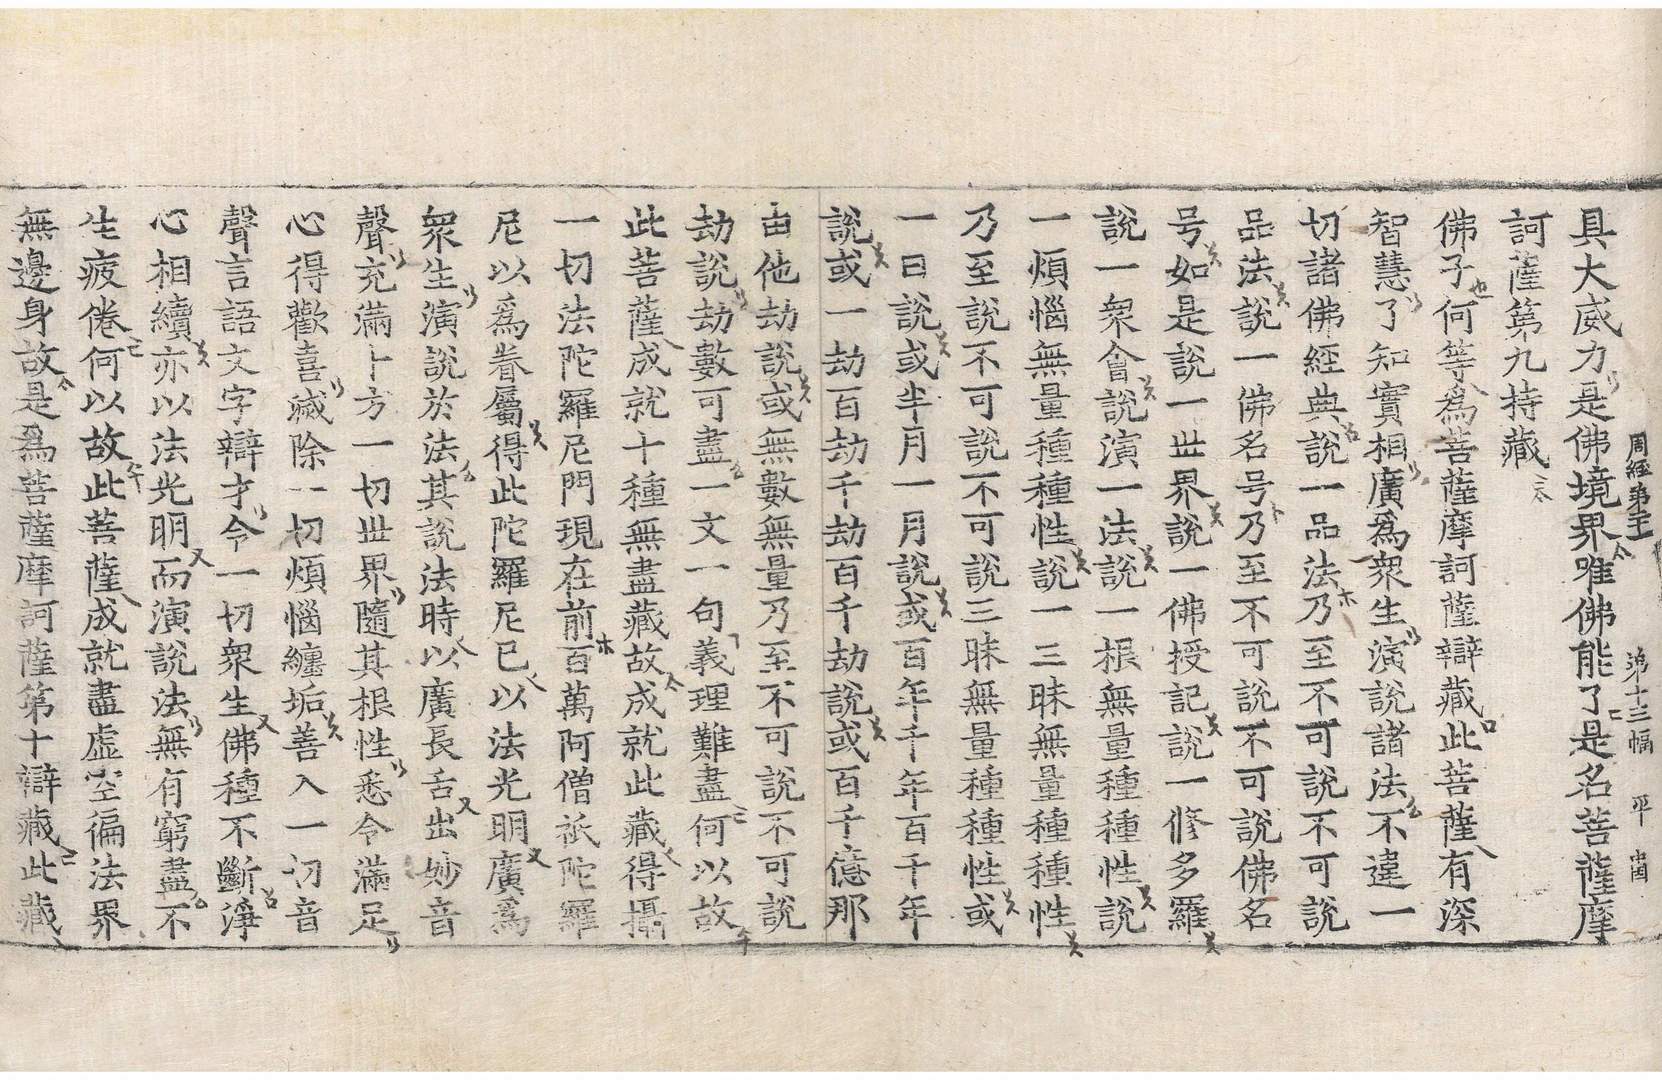 周經第二十 第十三幅 平 國
具大威力是佛境界唯佛能了是名菩薩摩
訶薩第九持藏
佛子何等爲菩薩摩訶薩辯藏此菩薩有深
智慧了知實相廣爲衆生演說諸法不違一
切諸佛經典說一品法乃至不可說不可說
品法說一佛名号乃至不可說不可說佛名
号如是說一世界說一佛授記說一修多羅
說一衆會說演一法說一根無量種種性說
一煩惱無量種種性說一三昧無量種種性
乃至說不可說不可說三昧無量種種性或
一日說或半月一月說或百年千年百千年
說或一劫百劫千劫百千劫說或百千億那
由他劫說或無數無量乃至不可說不可說
劫說劫數可盡一文一句義理難盡何以故
此菩薩成就十種無盡藏故成就此藏得攝
一切法陀羅尼門現在前百萬阿僧祇陀羅
尼以爲眷屬得此陀羅尼已以法光明廣爲
衆生演說於法其說法時以廣長舌出妙音
聲充滿十方一切世界隨其根性悉令滿足
心得歡喜滅除一切煩惱纏垢善入一切音
聲言語文字辯才令一切衆生佛種不斷淨
心相續亦以法光明而演說法無有窮盡不
生疲倦何以故此菩薩成就盡虛空徧法界
無邊身故是爲菩薩摩訶薩第十辯藏此藏